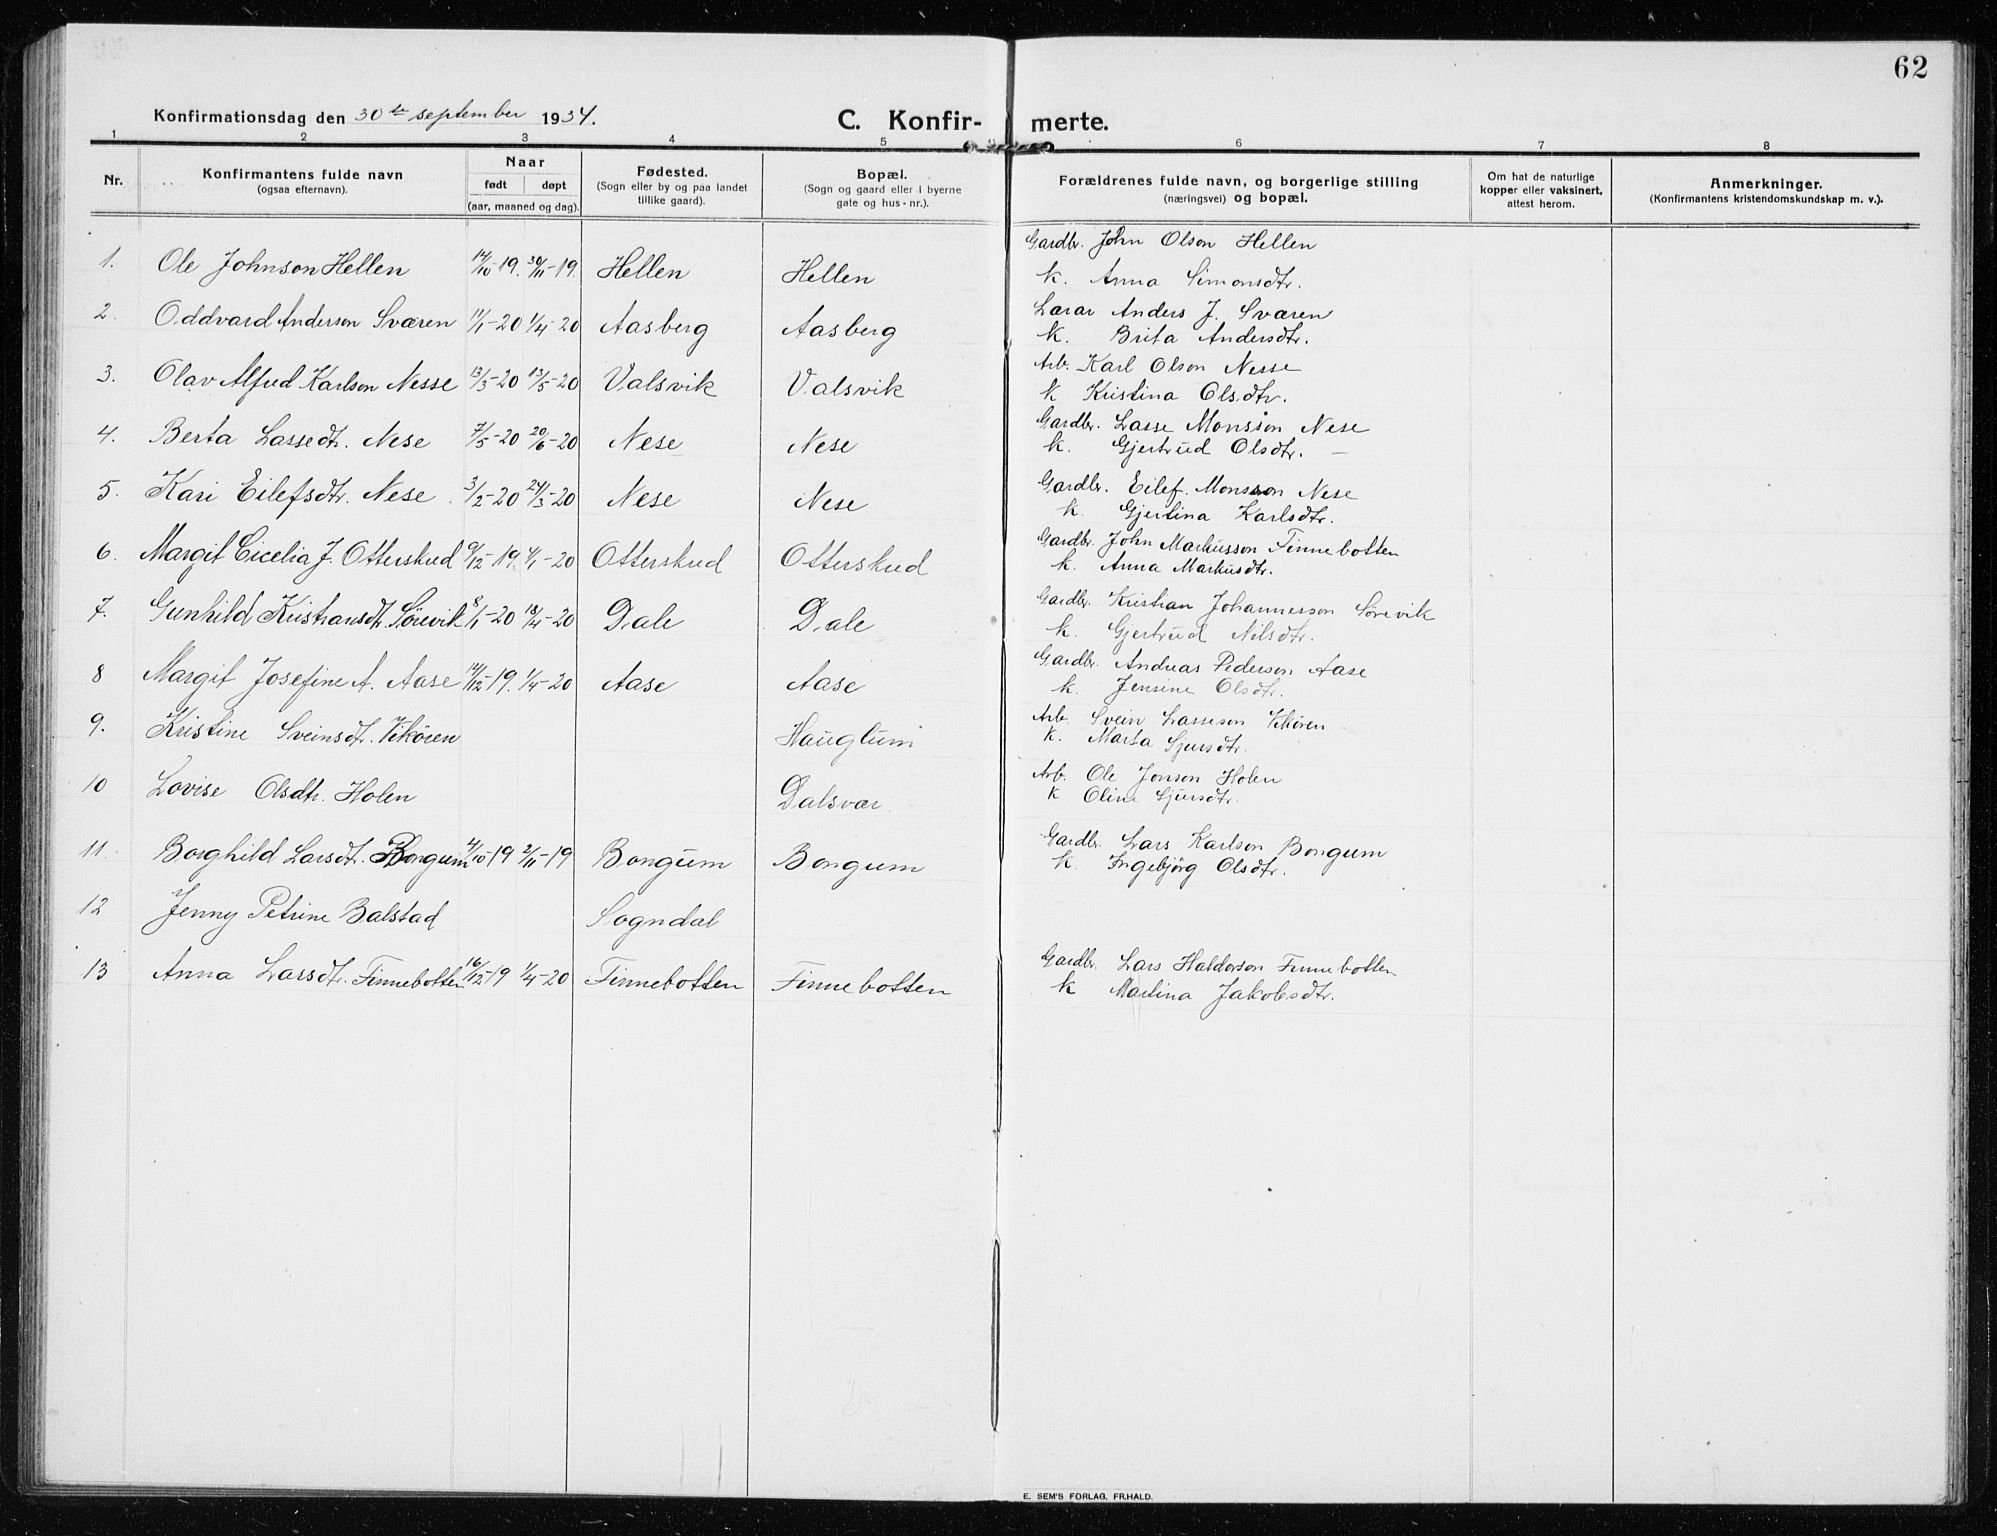 62
Konfirmationsdag den 30te september 1934. C. Konfir- merte.
1 2 3 4 5 6 7 8
Nr. Konfirmantens fulde navn (ogsaa efternavn). Naar født døpt (aar, maaned og dag). Fødested. (Sogn eller by og paa landet tillike gaard). Bopæl. (Sogn og gaard eller i byerne gate og hus-nr.). Forældrenes fulde navn, og borgerlige stilling (næringsvei) og bopæl. Om hat de naturlige kopper eller vaksinert, attest herom. Anmerkninger. (Konfirmantens kristendomskundskap m. v.).
Gardbr. John Olson Hellen
1. Ole Johnson Hellen 14/10-19. 30/11-19. Hellen Hellen
k. Anna Simonsdtr.
Lærar Anders J. Sværen
2. Oddvard Anderson Sværen 11/1-20 1/4-20 Aasberg Aasberg
k. Brita Andersdtr.
Arb. Karl Olson Nesse
3. Olav Alfred Karlson Nesse 13/3-20 13/5-20 Valsvik Valsvik
k Kristina Olsdtr.
Gardbr. Lasse Monsson Nese
4. Berta Lassedtr. Nese 7/5-20 20/6-20 Nese Nese
k. Gjertrud Olsdtr. —
Gardbr. Eilef. Monsson Nese
5. Kari Eilefsdtr. Nese 3/2-20 24/3-20 Nese Nese
k. Gjertina Karlsdtr.
Gardbr. John Markusson Finnebotten
6. Margit Cicelia J. Otterskred 9/12-19. 4/1-20 Otterskred Otterskred
k. Anna Markusdtr.
Gardbr. Kristian Johannesson Sørevik
7. Gunhild Kristiansdtr. Sørevik 8/1-20 18/4-20 Dale Dale
k. Gjertrud Nilsdtr.
Gardbr. Andreas Pederson Aase
8 Margit Josefine A. Aase 14/12-19. 1/4-20 Aase Aase
k. Jensine Olsdtr.
Arb. Svein Lasseson Vikøren
9. Kristine Sveinsdtr. Vikøren Hauglum
k. Marta Sjursdtr.
Arb. Ole Jonson Holen
10 Lovise Olsdtr. Holen Dalsvær
k Oline Sjursdtr.
Gardbr. Lars Karlson Bongum
11. Borghild Larsdtr. Bongum 4/10-19 2/11-19 Bongum Bongum
k. Ingebjørg Olsdtr.
12 Jenny Petrine Balstad Sogndal
Gardbr. Lars Haldorson Finnebotten
13 Anna Larsdtr. Finnebotten 16/12-19 1/4-20 Finnebotten Finnebotten
k Martina Jakobsdtr.
E. SEM'S FORLAG, FR.HALD.